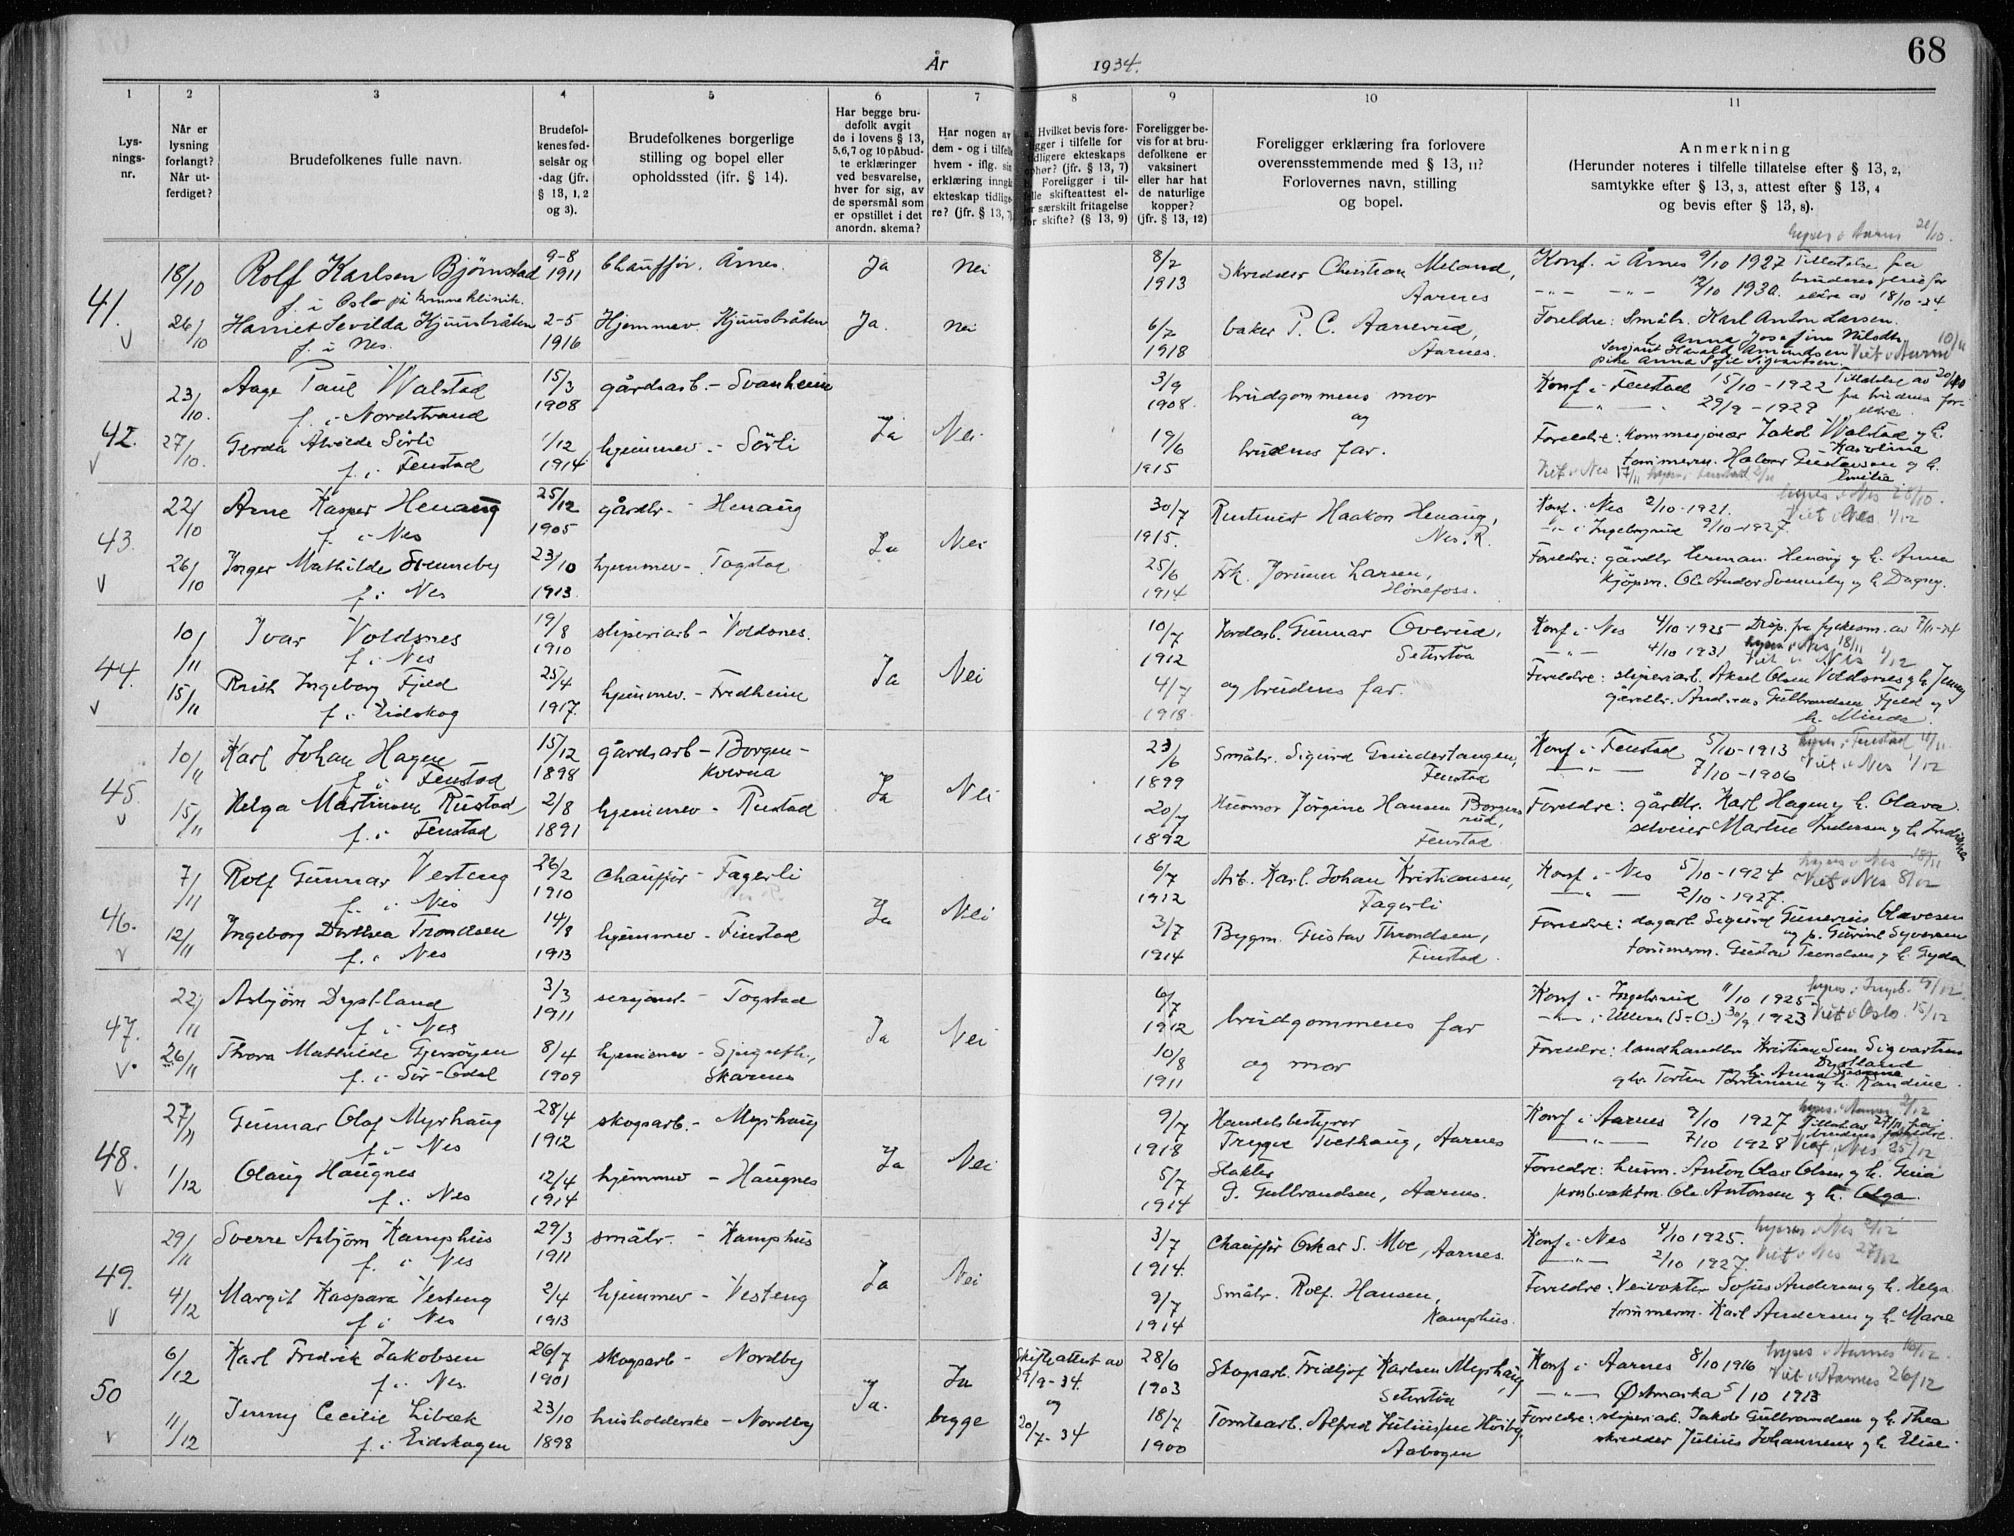 68
År 1934.
1 2 3 4 5 6 7 8 9 10 11
Lysningsnr.
Når er lysning forlangt? Når utferdiget?
Brudefolkenes fulle navn.
Brudefolkenes fødselsår og -dag (jfr. § 13, 1, 2 og 3).
Brudefolkenes borgerlige stilling og bopel eller opholdssted (ifr. § 14).
Har begge brudefolk avgit de i lovens § 13, 5,6,7 og 10 påbudte erklæringer ved besvarelse, hver for sig, av de spørsmål som er opstillet i det anordn. skema?
Har nogen av dem - og i tilfelle hvem - iflg. sin erklæring inngått ekteskap tidligere? (jfr. § 13, 7)
Hvilket bevis foreligger i tilfelle for tidligere ekteskaps ophør? (jfr. § 13, 7) Foreligger i tilfelle skifteattest eller særskilt fritagelse for skifte? (§ 13, 9)
Foreligger bevis for at brudefolkene er vaksinert eller har hat de naturlige kopper? (jfr. § 13, 12)
Foreligger erklæring fra forlovere overensstemmende med § 13, 11? Forlovernes navn, stilling og bopel.
Anmerkning
(Herunder noteres i tilfelle tillatelse efter § 13, 2, samtykke efter § 13, 3, attest efter § 13, 4 og bevis efter § 13, 8).
lyses i Aarnes 21/10.
41. 18/10 Rolf Karlsen Bjørnstad 9-8 1911 Chauffør. Årnes. Ja Nei 8/7 1913 Skredder Christian Meland, Aarnes Konf. i Årnes 9/10 1927 Tillatelse fra
f. i Oslo på kvinneklinik. 12/10 1930. brudens foreldre av 18/10-34.
26/10 Harriet Sevilda Kjuusbråten 2-5 1916 Hjemmev. Kjuusbråten Ja. Nei 6/7 1918 baker P. C. Aarnerud, Aarnes. Foreldre: Småbr. Karl Anton Larsen
f. i Nes. Anna Josefine
Sersjant Harald Amundsen Viet i Aarnes 10/11
pike Anna Sofie Sigvartsen
42. 23/10. Aage Paul Walstad 15/3 1908 gårdsarb. - Svanheim Ja Nei 3/9 1908. brudgommens mor Konf i Fenstad 15/10-1922 Tillatelse av 20/10
f. i Nordstrand og 29/9-1929 fra brudens foreldre.
27/10. Gerda Alvilde Sörli 1/12 1914 hjemmev. - Sörli 19/6 1915 brudens far. Foreldre: Kommisjonær Jakob Walstad og h. Karoline
f. i Fenstad tømmerm. Halvor Gustavsen og h. Emilie.
Viet i Nes 17/11 lyses i Fenstad
43. 22/10 Arne Kasper Henaug 25/12 1905 gårdbr. - Henaug Ja Nei 30/7 1915. Rentenist Haakon Henaug, Nes, R. Konf. i Nes 2/10-1921. lyses i Nes 28/10.
f. i Nes i Ingeborgrud 9/10-1927. Viet i Nes 1/12
26/10 Inger Mathilde Svenneby 23/10 1913. hjemmev - Togstad 25/6 1914. Frk. Jorunn Larsen, Hönefoss. Foreldre: gårdbr Herman Henaug og h. Anna
f. i Nes kjøpm. Ole Andor Svenneby og h Dagny.
44. 10/11 Ivar Voldsnes 19/8 1910 sliperiarb - Voldsnes. Ja Nei 10/7 1912 Jordarb. Gunnar Overud, Seterstöa Konf i Nes 4/10-1925 Disp. fra fylkesm. av 7/11-34
f. i Nes 4/10 1931 lyses i Nes 18/11 Viet i Nes 1/12
15/11 Ruth Ingeborg Fjeld 25/4 1917. hjemmev. - Fredheim 4/7 1918. og brudens far. Foreldre: sliperiarb. Aksel Olsen Voldsnes og h. Jenny
f. i Eidskog gårdbr. Andreas Gulbrandsen Fjeld og h. Minda.
45. 10/11 Karl Johan Hagen 15/12 1898 gårdsarb - Borgen- kverna Ja Nei 23/6 1899 Småbr. Sigurd Grinderstangen, Fenstad Konf i Fenstad 5/10-1913 lyses i Fenstad 18/11
f. i Fenstad 7/10-1906 Viet i Nes 1/12
15/11 Helga Martinsen Rustad 2/8 1891 hjemmev - Rustad 20/7 1892 Husmor Jörgine Hansen Borgersrud, Fenstad Foreldre: gårdbr. Karl Hagen og h. Olava.
f. i Fenstad selveier Martin Andersen og h.
46. 7/11 Rolf Gunnar Vesteng 26/2 1910 chauffør - Fagerli Ja Nei 6/7 1912 Arb. Karl Johan Kristiansen, Fagerli Konf i Nes 5/10-1924 lyses i Nes 18/11
f. i Nes 2/10-1927. Viet i Nes 8/12
12/11 Ingeborg Dorthea Trondsen 14/8 1913 hjemmev - Finstad 3/7 1914 Bygm. Gustav Throndsen, Finstad. Foreldre: dagarb Sigurd Gunerius Olavesen
f. i Nes og p. Gurine Syversen
tømmerm. Gustav Trondsen og h. Gyda
47. 22/11 Asbjørn Dystland 3/3 1911 sersjant - Togstad Ja Nei 6/7 1912 brudgommens far Konf i Ingebrud 11/10 1925 lyses i Ingeb. 9/12.
f. i Nes i Ullern (S-O.) 30/9 1923 Viet i Oslo. 15/12
26/11 Thora Mathilde Gjersöyen 8/4 1909 hjemmev - Skarnes 10/8 1911 og mor Foreldre: landhandler Kristian Sem Sigvartsen Dystland
f. i Sör-Odal h. Anna
gbr. Torsten Torstensen og h. Randine
48. 27/11 Gunnar Olaf Myrhaug 28/4 1912 skogsarb. - Myrhaug Ja Nei 9/7 1918 Handelsbestyrer Trygge Tvethaug, Aarnes Konf i Aarnes 9/10 1927 lyses i Aarnes 9/12
f. i Nes 7/10 1928 Viet i Nes 25/12 Tillat av 27/11 fra brudens foreldre.
1/12 Olaug Haugnes 12/4 1914 hjemmev - Haugnes 5/7 1914 Slakter G. Gulbrandsen, Aarnes. Foreldre: husm. Anton Olav Olsen og h. Gina
f. i Nes Ole Antonsen og h. Olga.
49. 29/11 Sverre Asbjørn Kamphus 29/3 1911 småbr. - Kamphus Ja Nei 3/7 1914. Chauffør Oskar S. Moe, Aarnes. Konf i Nes 4/10 1925. lyses i Nes 9/12
f. i Nes 2/10 1927. Viet i Nes 27/12
4/12 Margit Kaspara Vesteng 2/4 1913 hjemmev - Vesteng 9/7 1914 Småbr. Rolf Hansen, Kamphus. Foreldre: Veivokter Sofus Andersen og h. Helga
f. i Nes tømmerm. Karl Andersen og h. Marie
50 6/12 Karl Fredrik Jakobsen 26/7 1901 skogsarb - Nordby Ja. Ja begge Skifteattest av 29/9-34. og 20/7-34 28/6 1903 Skogsarb. Fridtjof Karlsen Myrhaug, Seterstöa Konf i Aarnes 8/10 1916 lyses i Aarnes 16/12.
f. i Nes. Østmarka 5/10 1913 Viet i Aarnes 26/12
11/12 Jenny Cecilie Libæk 23/10 1898 husholderske - Nordby 18/7 1900 Tomtearb. Alfred Juliussen Höiby, Aabogen Foreldre: sliperiarb. Jakob Gulbrandsen og h. Thea
f. i Eidskogen skredder Julius Johannesen og h. Elise.